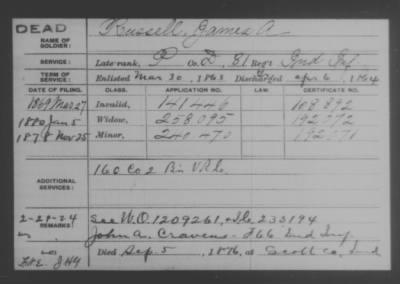 DEAD
NAME OF SOLDIER: Russell, James A
SERVICE: Late rank, P Co. D, 81 Reg't Ind Inf.
TERM OF SERVICE: Enlisted Mar 30, 1863 Discharged Apr 6, 1864
DATE OF FILING. CLASS. APPLICATION NO. LAW. CERTIFICATE NO.
1869 Mar 27 Invalid, 141446 108892
1880 Jan 5 Widow, 258095 192272
1878 Nov 25 Minor, 240470 192271
ADDITIONAL SERVICES: 160 Co 2 Bn V.R.C.
2-29-24
REMARKS: See W.O. 1209261, 233194
John A. Cravens - F 66 Ind Inf.
Died Sep. 5, 1876, at Scott Co, Ind